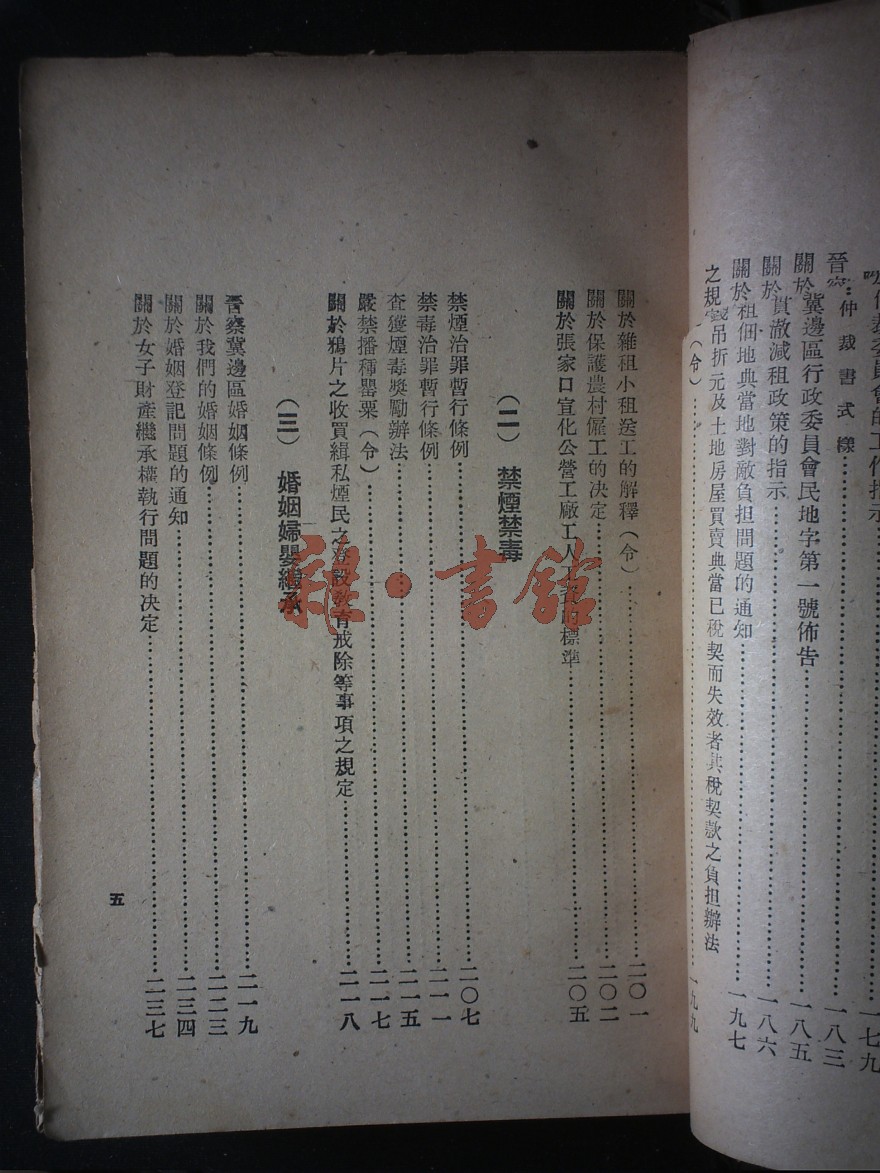 仲裁書式樣……一八三
冀邊區行政委員會民地字第一號佈告……一八五
關於貫澈減租政策的指示……一八六
關於租佃地典當地對敵負担問題的通知……一九七
吊折元及土地房屋買賣典當已稅契而失效者其稅契款之負担辦法
之規
(令)……一九九
關於雜租小租送工的解釋(令)……二〇一
關於保護農村僱工的决定……二〇二
關於張家口宣化公營工廠工人工資的標準……二〇五
(二) 禁煙禁毒
禁煙治罪暫行條例……二〇七
禁毒治罪暫行條例……二一一
查獲煙毒獎勵辦法……二一五
嚴禁播種罌粟(令)……二一七
關於鴉片之收買緝私煙民之登設教育戒除等事項之規定……二一八
(三) 婚姻婦嬰繼承
晉察冀邊區婚姻條例……二一九
關於我們的婚姻條例……二二三
關於婚姻登記問題的通知……二三四
關於女子財產繼承權執行問題的决定……二三七
五
雜·書館